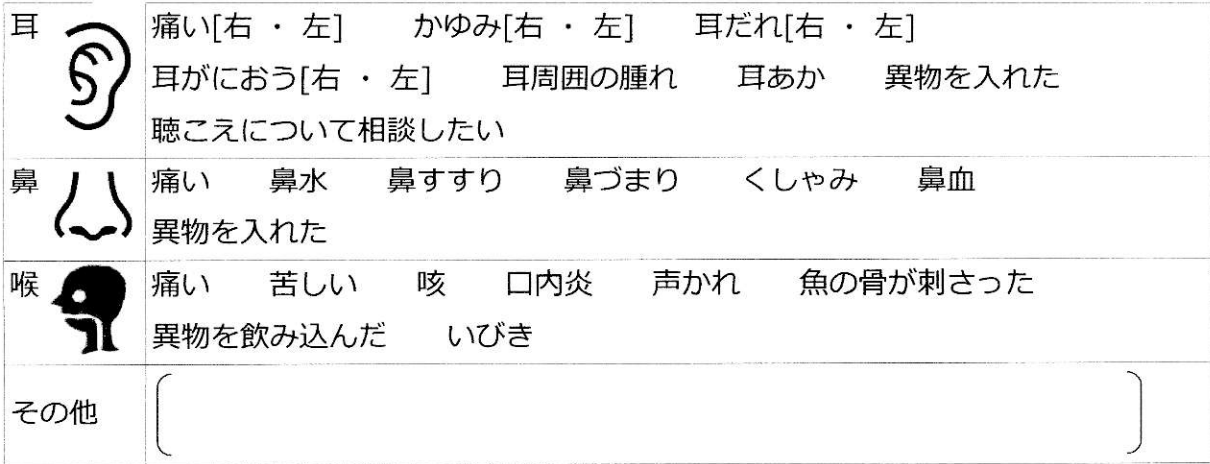 耳 痛い[右 ・ 左] かゆみ[右 ・ 左] 耳だれ[右 ・ 左]
耳がにおう[右 ・ 左] 耳周囲の腫れ 耳あか 異物を入れた
聴こえについて相談したい
鼻 痛い 鼻水 鼻すすり 鼻づまり くしゃみ 鼻血
異物を入れた
喉 痛い 苦しい 咳 口内炎 声かれ 魚の骨が刺さった
異物を飲み込んだ いびき
その他